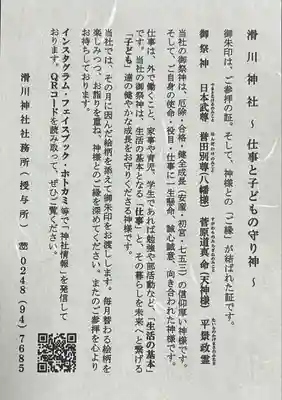 滑川神社 仕事と子どもの守り神～
御朱印は、ご参拝の証。そして、神様との「ご縁」が結ばれた証です。
御祭神 日本武尊 誉田別尊(八幡様) 菅原道真命(天神様) 平景政霊
当社の御祭神は、厄除・合格・健全成長（安産・初宮・七五三）の信仰厚い神様です。
そして、ご自身の使命・役目・仕事に一生懸命、誠心誠意、向き合われた神様です。
仕事は、外で働くこと、家事や育児、学生であれば勉強や部活動など、「生活の基本」
です。当社の御祭神は、生活の基本となる「仕事」と、その暮らしを未来へと繋げる
「子ども」達の健やかな成長をお守りくださる神様です。
当社では、その月に因んだ絵柄を添えて御朱印をお渡しします。毎月替わる絵柄を
楽しみつつ、お詣りを重ね、神様とのご縁を深めてください。またのご参拝を心より
お待ちしております。
インスタグラム・フェイスブック・ホトカミ等で「神社情報」を発信して
おります。QRコードを読み取って、ぜひご覧ください。
滑川神社社務所（授与所） ☎0248(94)7685